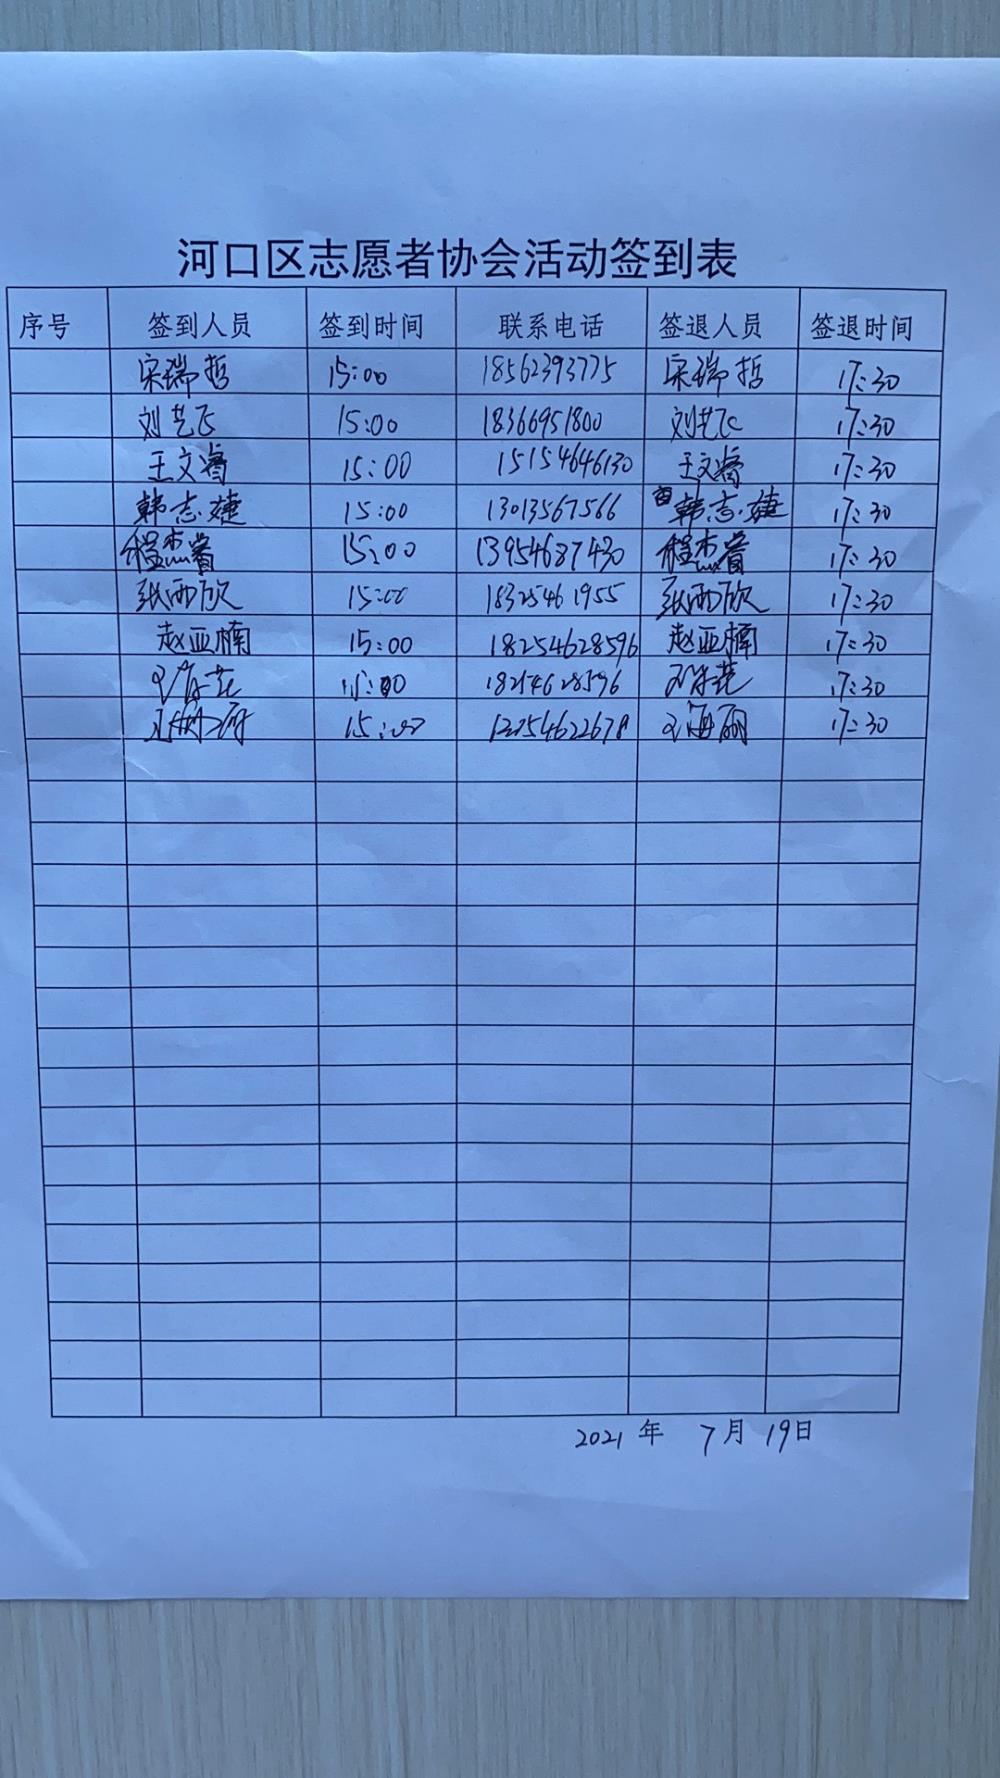 河口区志愿者协会活动签到表
序号 签到人员 签到时间 联系电话 签退人员 签退时间
宋瑞哲 15:00 18562393775 宋瑞哲 17:30
刘艺飞 15:00 18366951800 刘艺飞 17:30
王文睿 15:00 15154646130 王文睿 17:30
韩志婕 15:00 13013567566 韩志婕 17:30
程杰睿 15:00 13954687430 程杰睿 17:30
张雨欣 15:00 18325461955 张雨欣 17:30
赵亚楠 15:00 18254628596 赵亚楠 17:30
15:00 18254628596 17:30
15:00 17:30
2021 年 7 月 19日